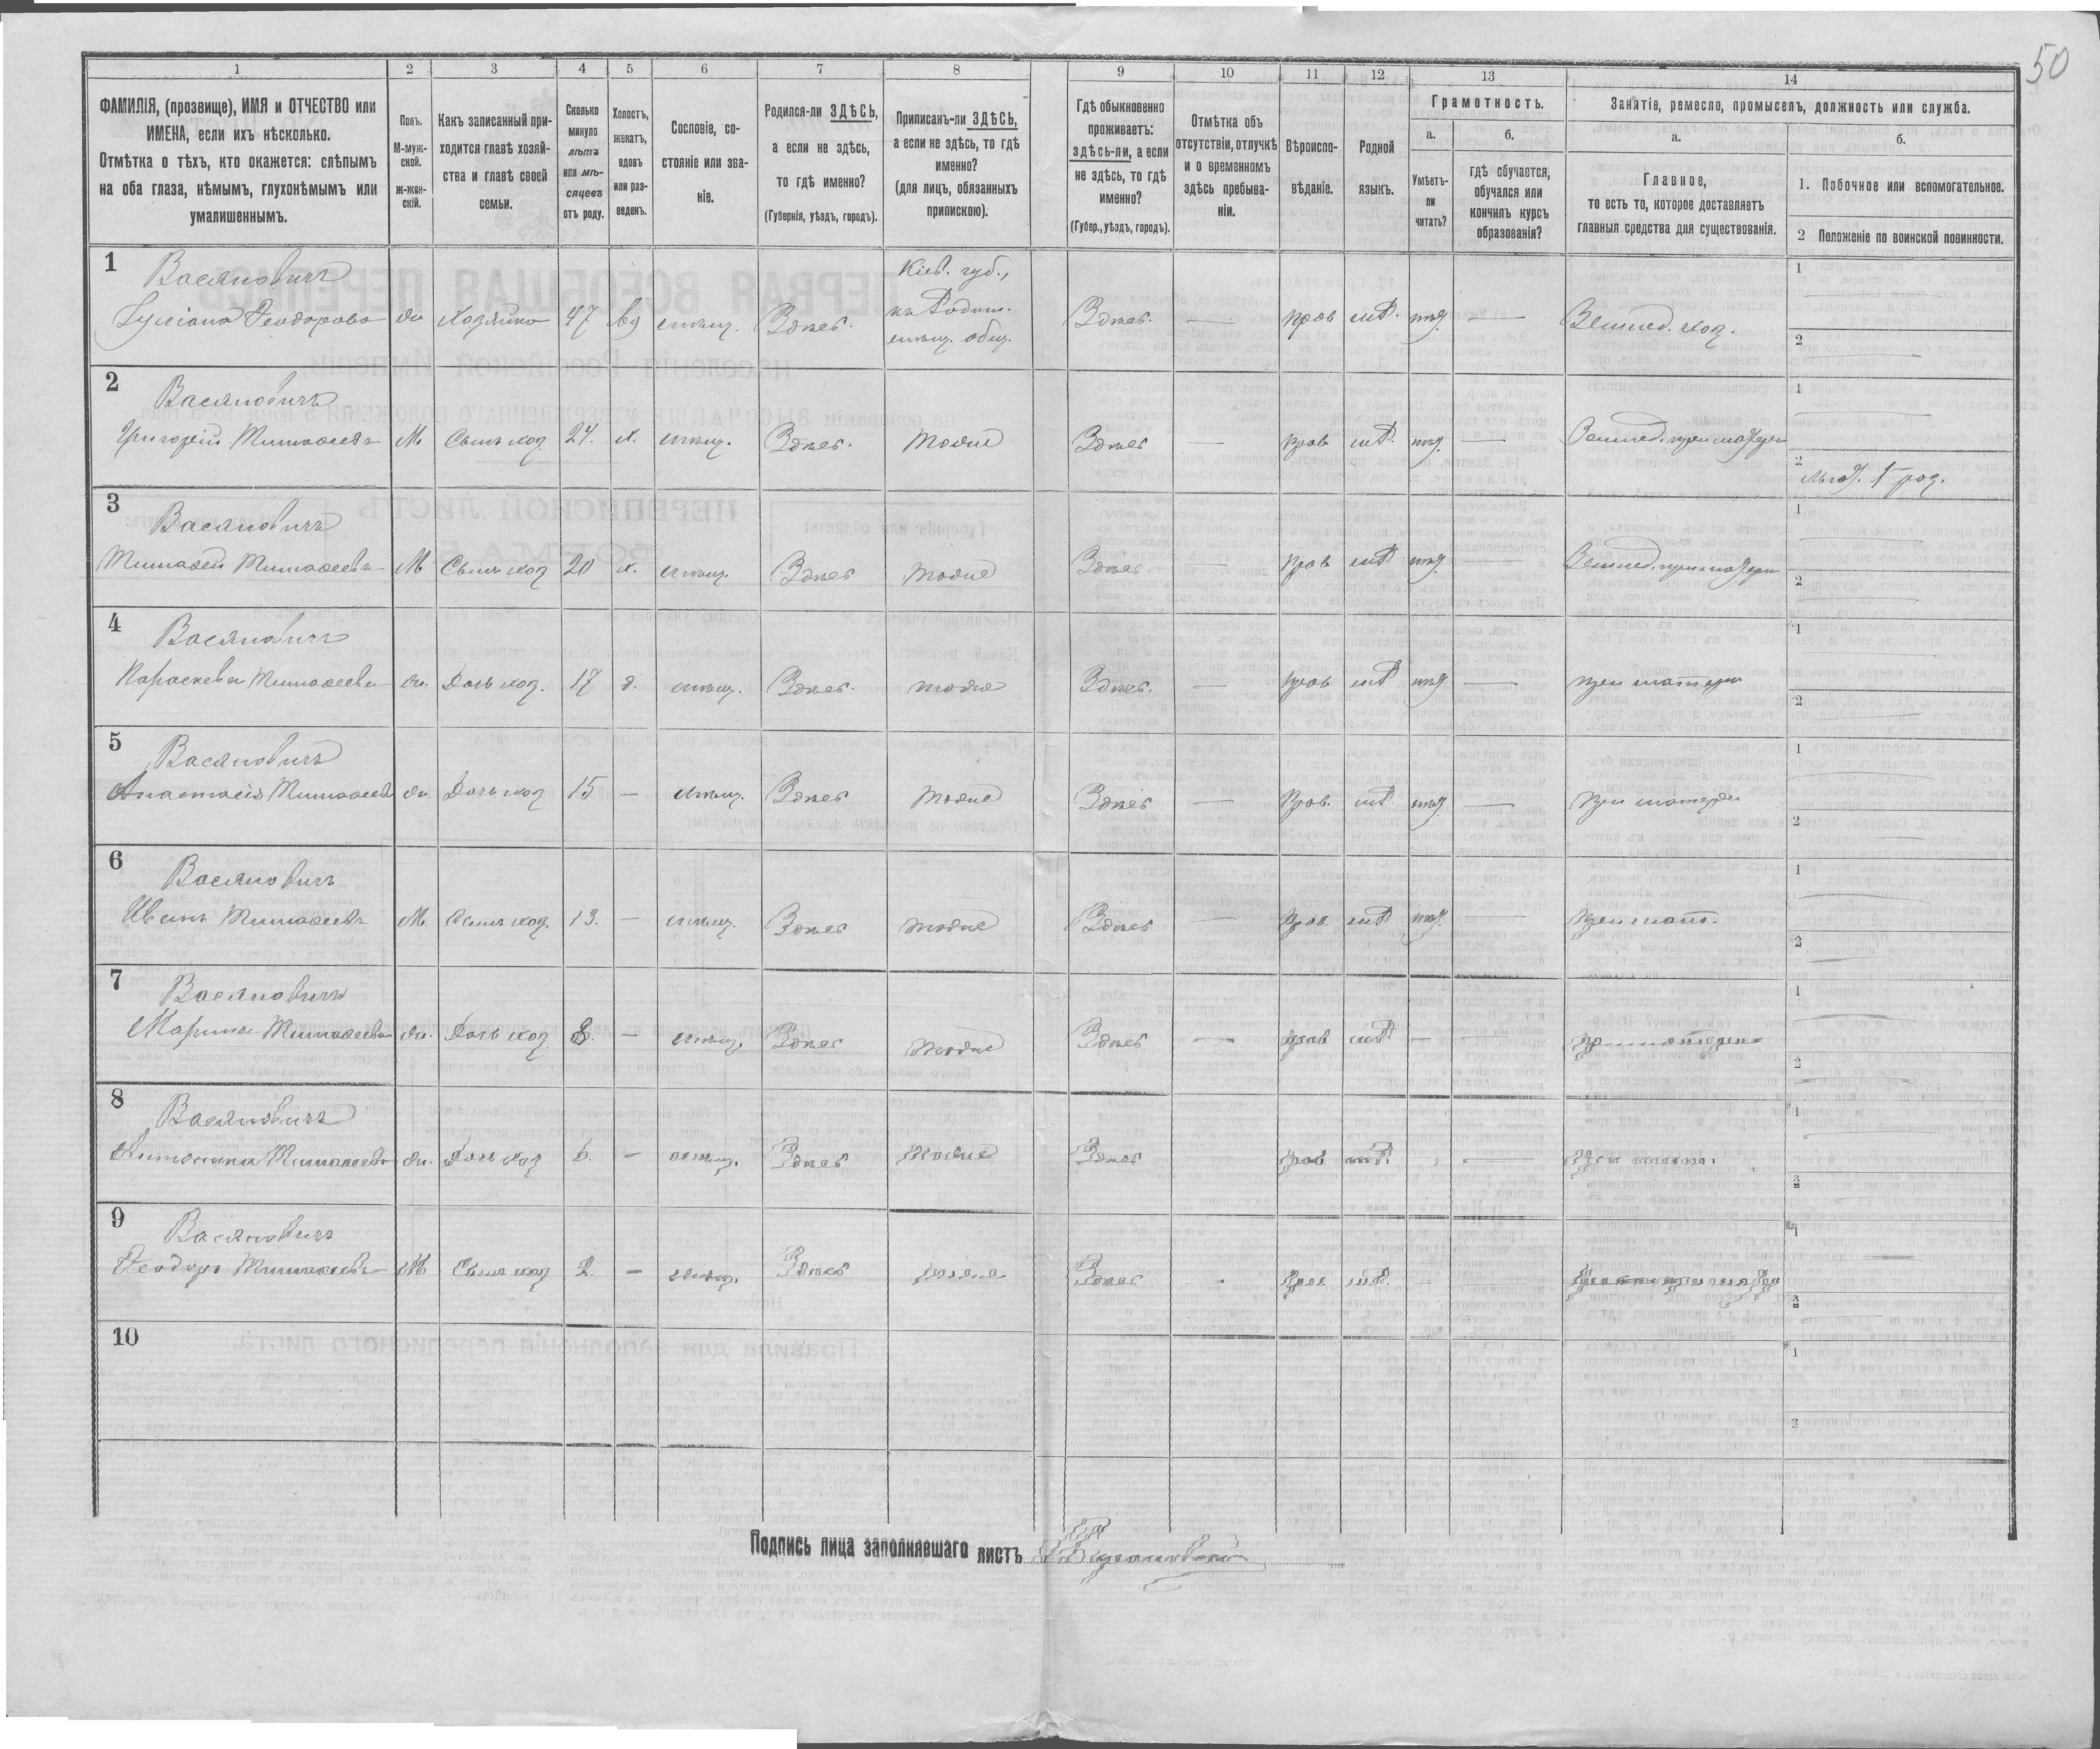 50
1 2 3 4 5 6 7 8 9 10 11 12 13 14
ФАМИЛІЯ, (прозвище), ИМЯ и ОТЧЕСТВО или
ИМЕНА, если ихъ нѣсколько.
Отмѣтка о тѣхъ, кто окажется: слѣпымъ
на оба глаза, нѣмымъ, глухонѣмымъ или
умалишеннымъ.
Полъ.
М-муж-
ской.
ж-жен-
скій.
Какъ записанный при-
ходится главѣ хозяй-
ства и главѣ своей
семьи.
Сколько
минуло
лѣтъ
или мѣ-
сяцевъ
отъ роду.
Холостъ,
женатъ,
вдовъ
или раз-
веденъ.
Сословіе, со-
стояніе или зва-
ніе.
Родился-ли ЗДѢСЬ,
а если не здѣсь,
то гдѣ именно?
(Губернія, уѣздъ, городъ).
Приписанъ-ли ЗДѢСЬ,
а если не здѣсь, то гдѣ
именно?
(для лицъ, обязанныхъ
припискою).
Гдѣ обыкновенно
проживаетъ:
здѣсь-ли, а если
не здѣсь, то гдѣ
именно?
(Губер., уѣздъ, городъ).
Отмѣтка объ
отсутствіи, отлучкѣ
и о временномъ
здѣсь пребыва-
ніи.
Вѣроиспо-
вѣданіе.
Родной
языкъ.
Грамотность.
а.
Умѣетъ-
ли
читать?
б.
гдѣ обучается,
обучался или
кончилъ курсъ
образованія?
Занятіе, ремесло, промыселъ, должность или служба.
а.
Главное,
то есть то, которое доставляетъ
главныя средства для существованія.
б.
1. Побочное или вспомогательное.
2 Положеніе по воинской повинности.
1 Васяновичъ
Кіев. губ.,
Ѳеодорова ж Хозяйка 47 вд мѣщ. Здѣсь. мѣщ. общ. Здѣсь. — прав нѣт. — Землед. хоз.
1
2
2 Васяновичъ
Григорій Тимоѳеевъ М Сынъ хоз. 24. х. мѣщ. Здѣсь. тоже Здѣсь — прав нѣт. — Землед. при матери
1
2 льгот. 1 раз.
3 Васяновичъ
Тимоѳей Тимоѳеевъ М Сынъ хоз 20 х. мѣщ. Здѣсь тоже Здѣсь — прав нѣт — Землед. при матери
1
2
4 Васяновичъ
Параскева Тимоѳеева ж. Дочь хоз. 17 д. мѣщ. Здѣсь. тоже Здѣсь. — прав нѣт — при матери
1
2
5 Васяновичъ
Анастасія Тимоѳеев ж Дочь хоз 15 — мѣщ. Здѣсь тоже Здѣсь — прав. нѣт. — при матери
1
2
6 Васяновичъ
Иванъ Тимоѳеевъ М. Сынъ хоз. 13. — мѣщ. Здѣсь тоже Здѣсь — прав. нѣт — при мат.
1
2
7 Васяновичъ
Марина Тимоѳеева ж. Дочь хоз. 8. — мѣщ. Здѣсь тоже Здѣсь — прав — — при матери
1
2
8 Васяновичъ
Антонина Тимоѳеева ж. Дочь хоз 6. — мѣщ. Здѣсь тоже Здѣсь прав — — при матер.
1
2
9 Васяновичъ
Ѳеодоръ Тимоѳеевъ М Сынъ хоз 2. — мѣщ. Здѣсь тоже Здѣсь прав — — при матери
1
2
10
1
2
Подпись лица заполнявшаго листъ